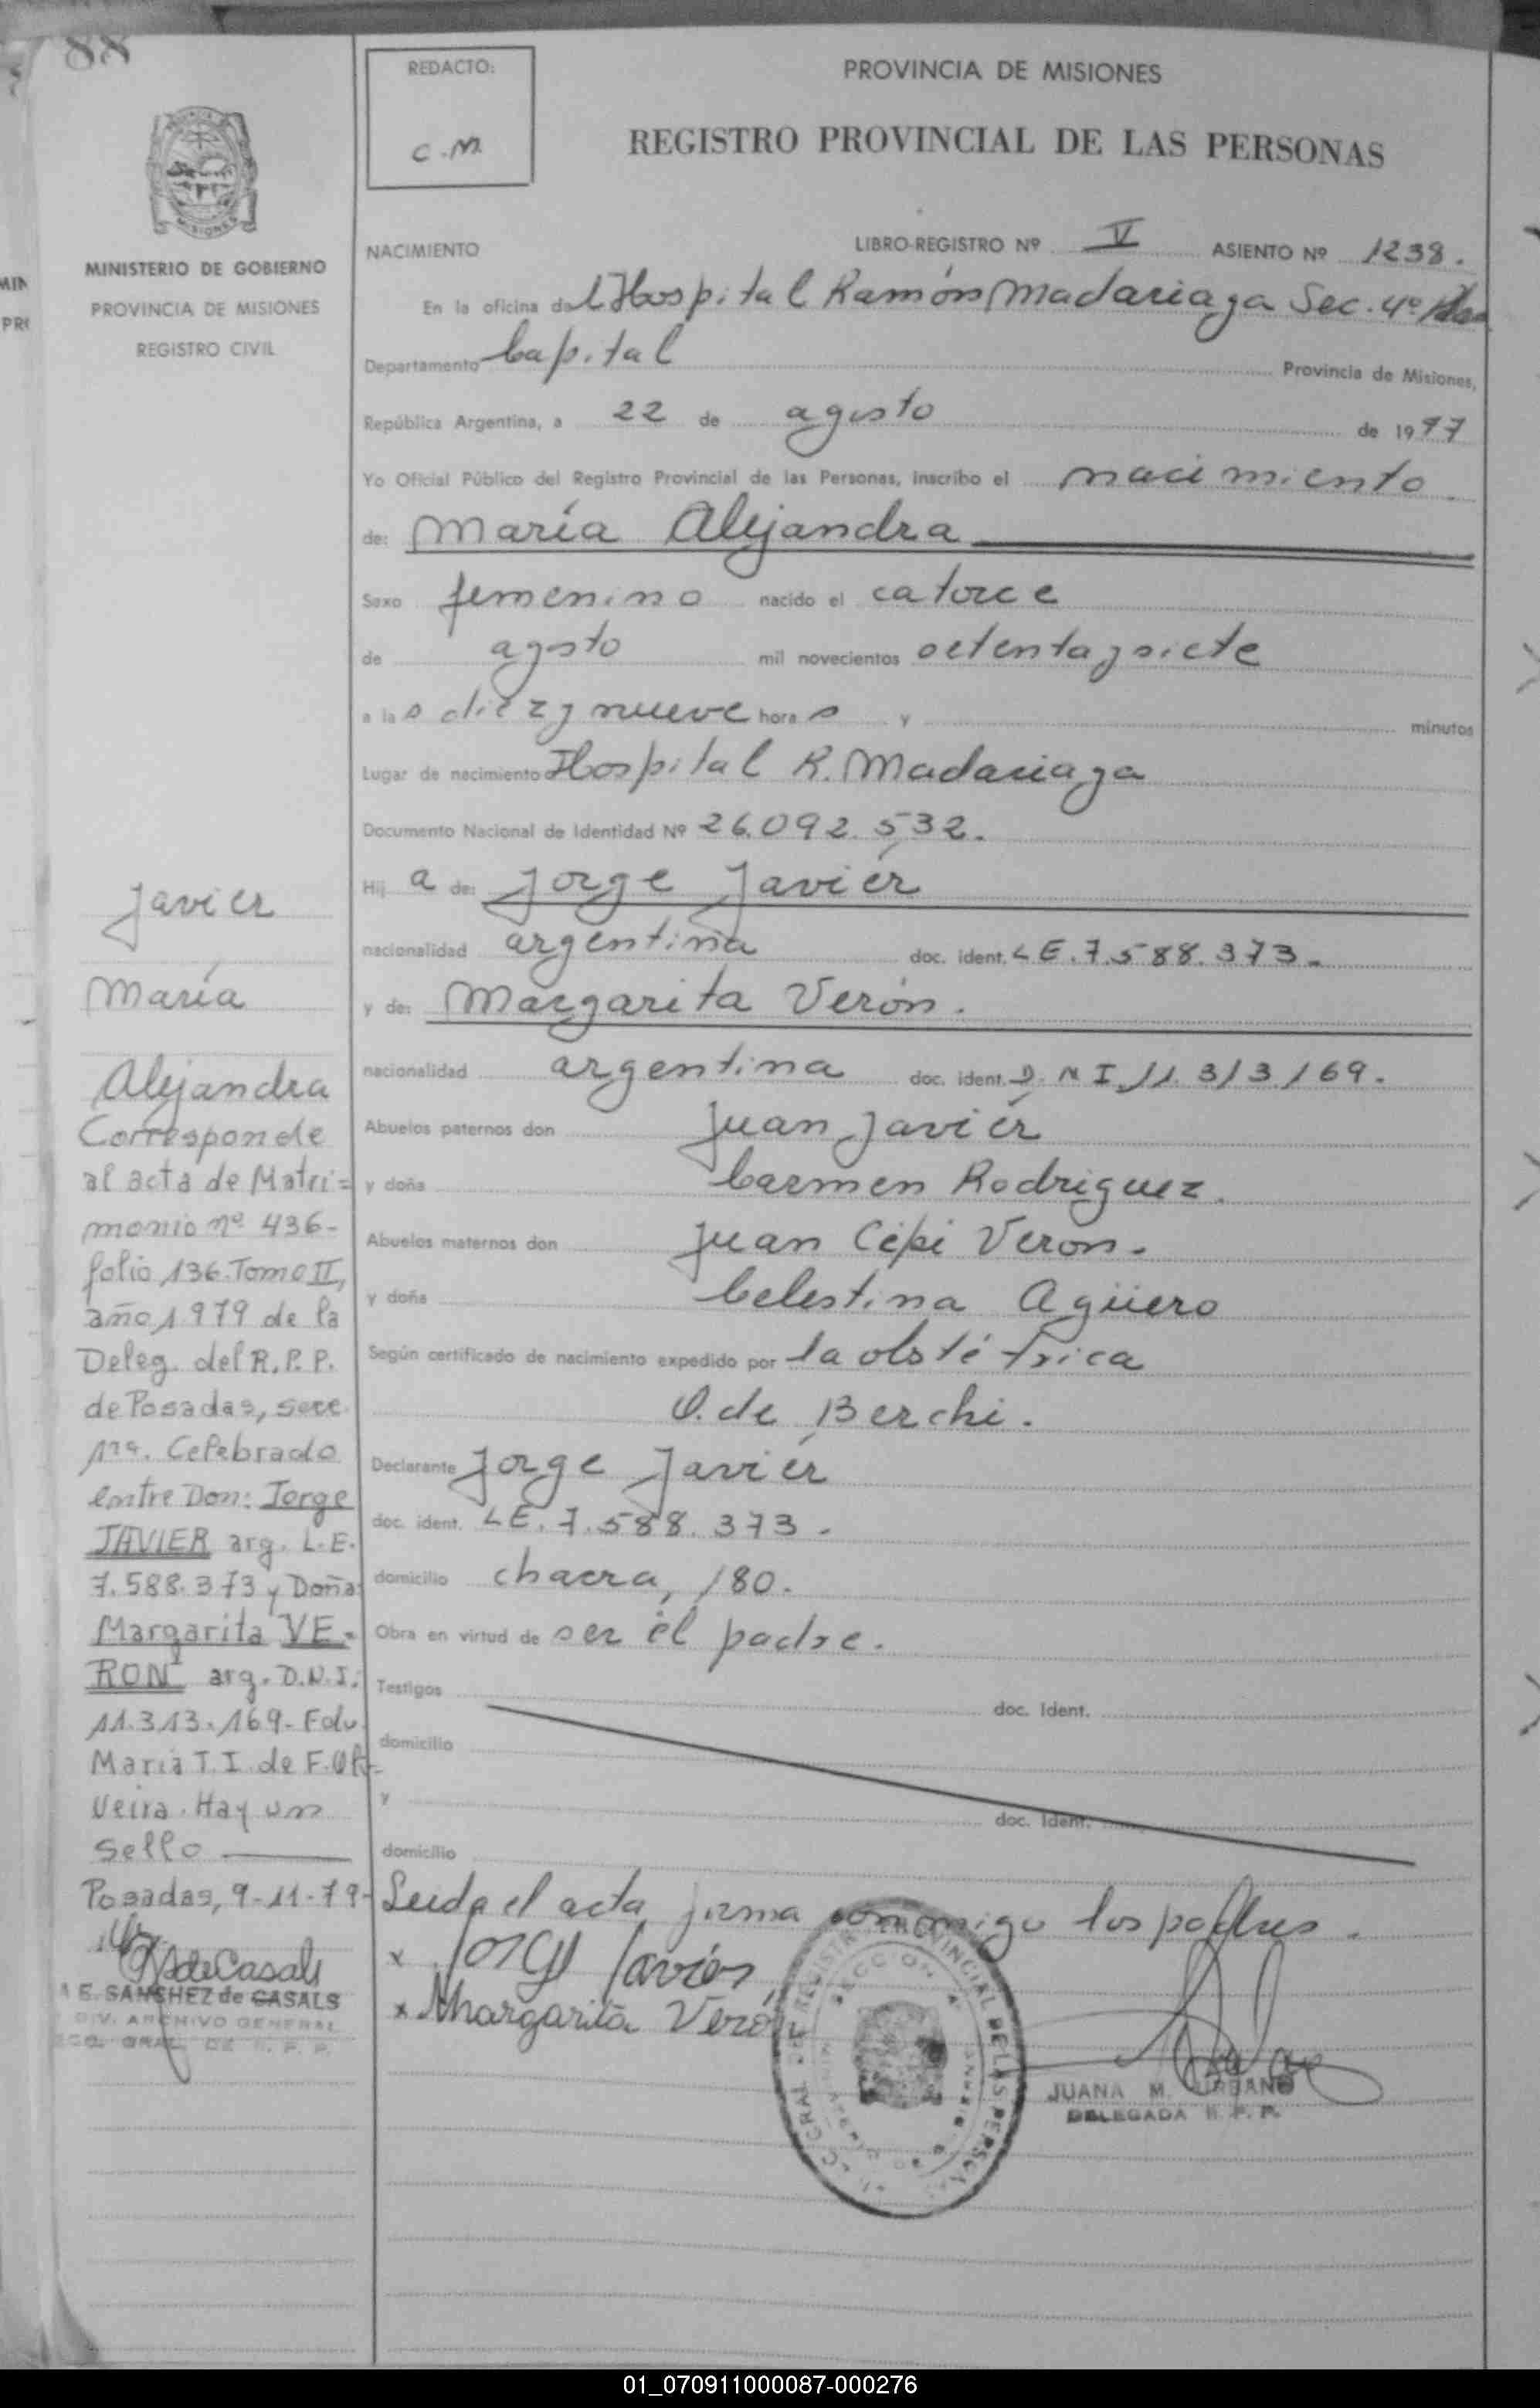 88
REDACTO:
C.M.
PROVINCIA DE MISIONES
REGISTRO PROVINCIAL DE LAS PERSONAS
MISIONES
MINISTERIO DE GOBIERNO
PROVINCIA DE MISIONES
REGISTRO CIVIL
NACIMIENTO LIBRO-REGISTRO Nº V ASIENTO Nº 1238.
En la oficina del Hospital Ramón Madariaga Sec. 4º
Departamento Capital Provincia de Misiones,
República Argentina, a 22 de agosto de 1977
Yo Oficial Público del Registro Provincial de las Personas, inscribo el nacimiento
de: María Alejandra
Sexo femenino nacido el catorce
de agosto mil novecientos setenta y siete
a las diez y nueve horas y minutos
Lugar de nacimiento Hospital R. Madariaga
Documento Nacional de Identidad Nº 26.092.532.
Hij a de: Jorge Javiér
nacionalidad argentina doc. ident. LE. 7.588.373.
y de: Margarita Verón.
nacionalidad argentina doc. ident. D.N I. 11.313169.
Abuelos paternos don Juan Javiér
y doña Carmen Rodriguez.
Abuelos maternos don Juan Cipi Veron.
y doña Celestina Agüero
Según certificado de nacimiento expedido por la obstétrica
O. de Berchi.
Declarante Jorge Javiér
doc. ident. LE. 7.588.373.
domicilio chacra, 180.
Obra en virtud de ser el padre.
Testigos doc. Ident.
domicilio
y doc. Ident.
domicilio
Leida el acta firma conmigo los padres.
x Jorge Javier
x Margarita Verón
JUANA M.
DELEGADA R. P. P.
Javier
María
Alejandra
Corresponde
al acta de Matri=
monio nº 436-
folio 136. Tomo II,
año 1979 de la
Deleg. del R.P.P.
de Posadas, secc.
1ra. Celebrado
entre Don: Jorge
JAVIER arg. L.E.
7.588.373 y Doña:
Margarita VE=
RON arg. D.N.I.
11.313.169- Fdo.
Maria T. I. de F. Oli=
veira. Hay un
sello
Posadas, 9-11-79-
E. SANCHEZ de CASALS
DIV. ARCHIVO GENERAL
GRAL. DE R. P. P.
01_070911000087-000276